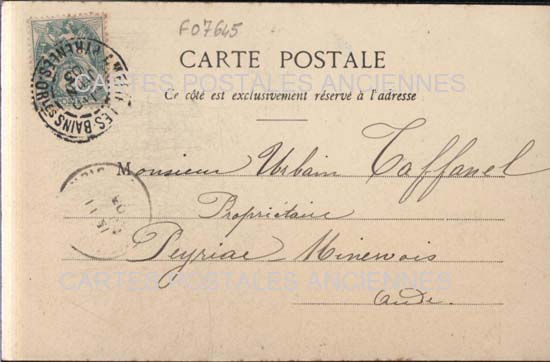 F07645
CARTE POSTALE
Ce côté est exclusivement réservé à l'adresse
CARTES POSTALES ANCIENNES
Monsieur Urbain Taffanel
Propriétaire
Peyriac Minervois
CARTES POSTALES ANCIENNES
Aude.
LES-BAINS
PYRÉNÉES-OR